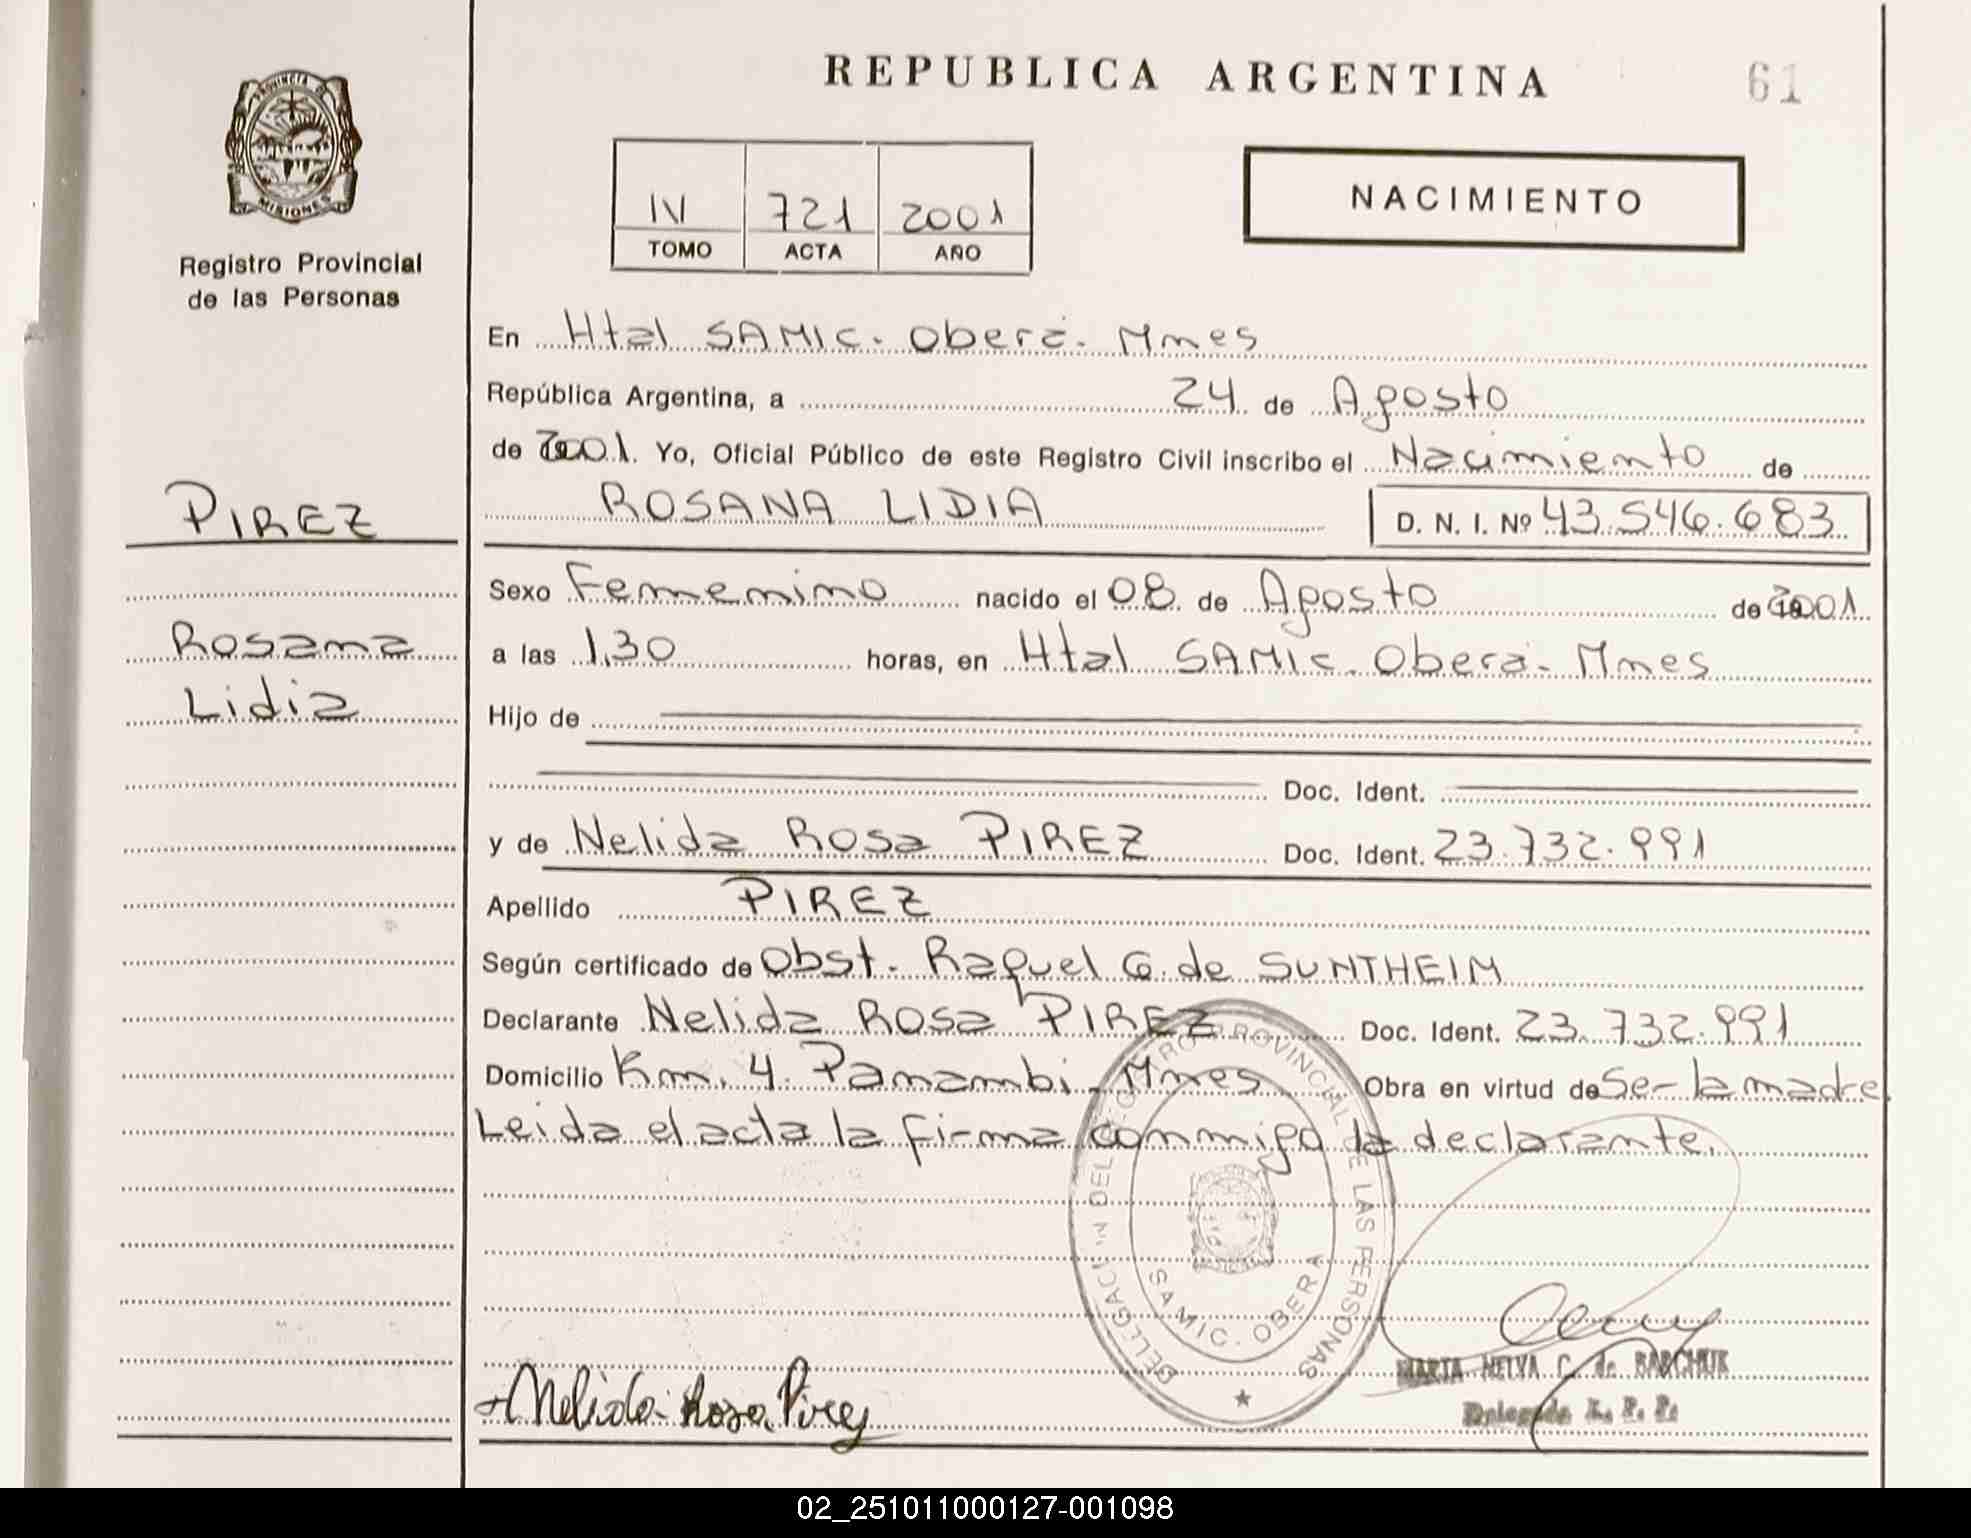 REPUBLICA ARGENTINA
61
PROVINCIA DE
MISIONES
Registro Provincial
de las Personas
IV 721 2001
TOMO ACTA AÑO
NACIMIENTO
En Htal SAMIC. Oberá. Mnes
República Argentina, a 24 de Agosto
de 2001. Yo, Oficial Público de este Registro Civil inscribo el Nacimiento de
ROSANA LIDIA D. N. I. Nº 43.546.683
PIREZ
Rosana
Lidia
Sexo Femenino nacido el 08 de Agosto de 2001
a las 1,30 horas, en Htal SAMIC. Oberá. Mnes
Hijo de
Doc. Ident.
y de Nelida Rosa PIREZ Doc. Ident. 23.732.991
Apellido PIREZ
Según certificado de Obst. Raquel G. de SUNTHEIM
Declarante Nelida Rosa PIREZ Doc. Ident. 23.732.991
Domicilio Km. 4. Panambi. Mnes Obra en virtud de Ser la madre
Leida el acta la firma conmigo la declarante.
DELEGACION DEL REGISTRO PROVINCIAL DE LAS PERSONAS
SAMIC. OBERA
Nelida Rosa Pirez
MARTA NELVA C. de BABCHUK
Delegada R. P. P.
02_251011000127-001098